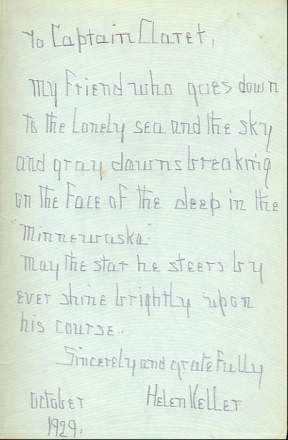 To Captain Claret,
My friend who goes down
to the lonely sea and the sky
and gray dawns breaking
on the face of the deep in the
"Minnewaska".
May the star he steers by
ever shine brightly upon
his course.
Sincerely and gratefully
October Helen Keller
1929.